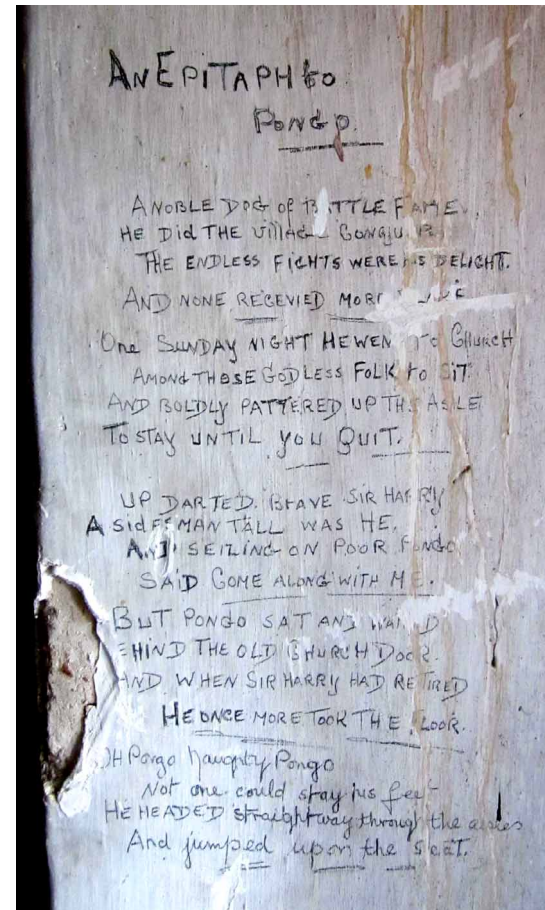 AN EPITAPH to
Pongo.
A NOBLE DOG of BATTLE FAME.
HE Did THE Village
THE ENDLESS FIGHTS WERE HIS DELIGHT.
AND NONE RECEVIED MORE
One SUNDAY NIGHT HE WENT TO CHURCH
AMONG THOSE GODLESS FOLK to SIT
AND BOLDLY PATTERED UP THE ASLE
TO STAY UNTIL YOU QUIT.
UP DARTED BRAVE SIR HARRY
A SidESMAN TALL WAS HE.
AND SEIZING ON POOR PONGO
SAID COME ALONG WITH ME.
BUT PONGO SAT AND WAITED
BEHIND THE OLD CHURCH DOOR.
AND WHEN SIR HARRY HAD RETIRED
HE ONCE MORE TOOK THE FLOOR.
OH Pongo Naughty Pongo
Not one could stay his feet
HE HEADED straightway through the aisles
And jumped upon the seat.